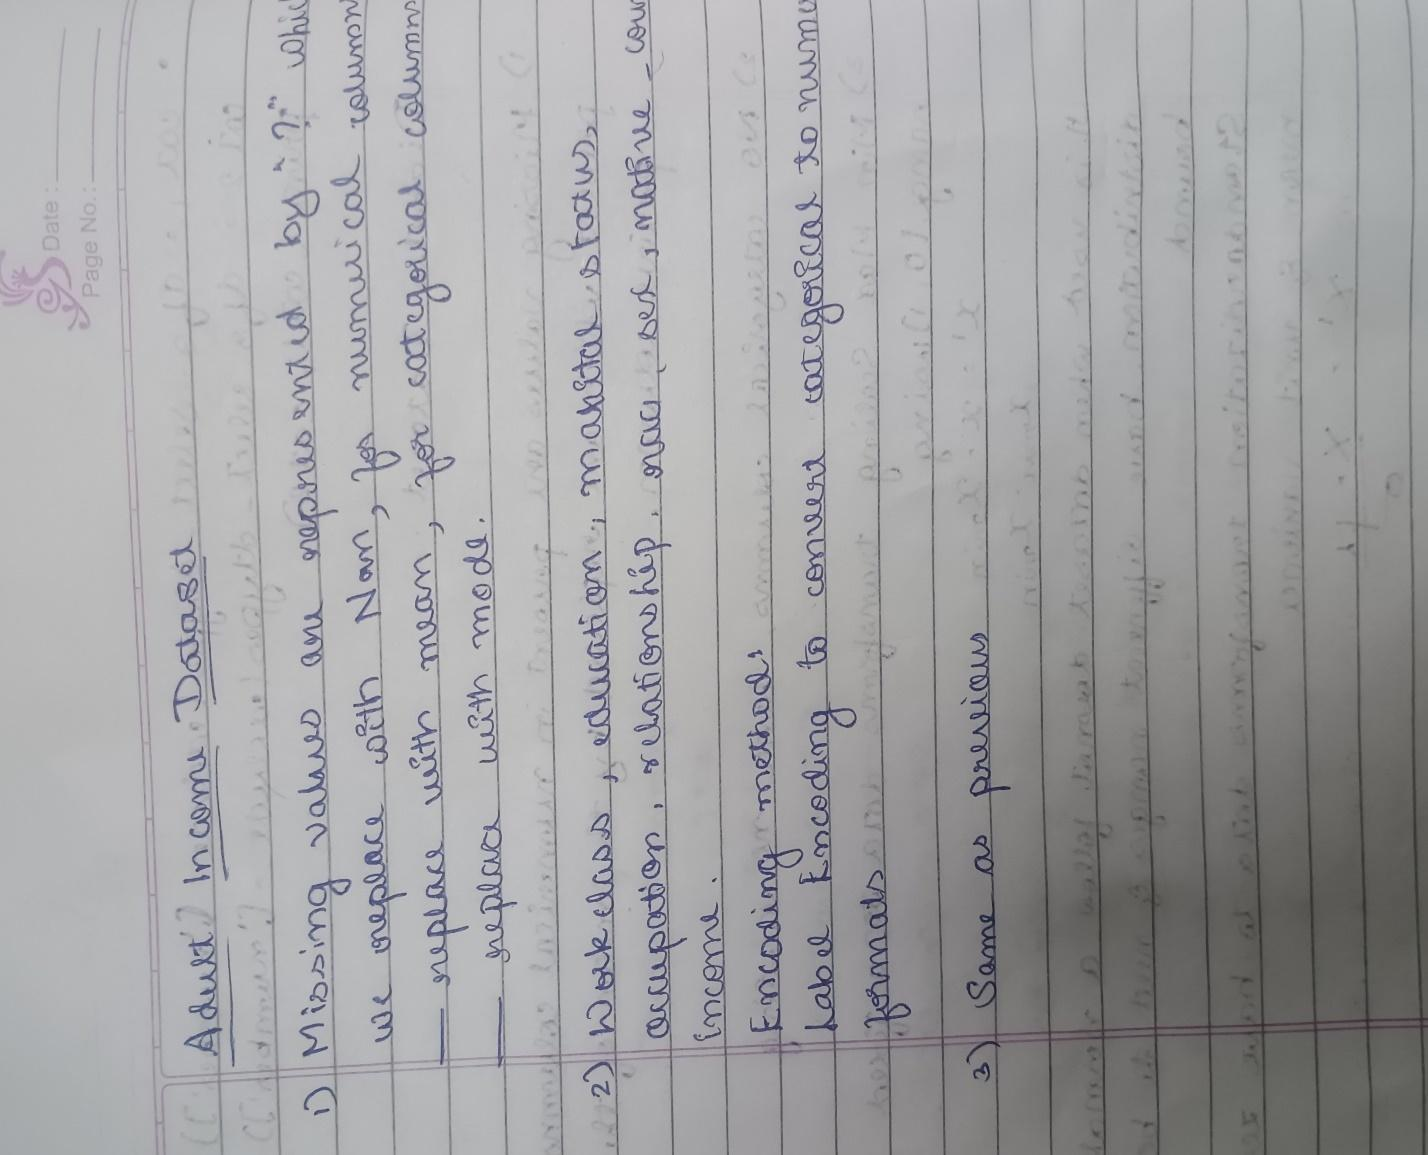 Date :
Page No. :
Adult Income Dataset
1) Missing values are represented by "?" which
we replace with Nan, for numerical column
— replace with mean, for categorical columns
— replace with mode.
2) Workclass, education, marital status,
occupation, relationship, race, sex, native-coun
income.
Encoding methods
Label Encoding to convert categorical to nume
formats
3) Same as previous